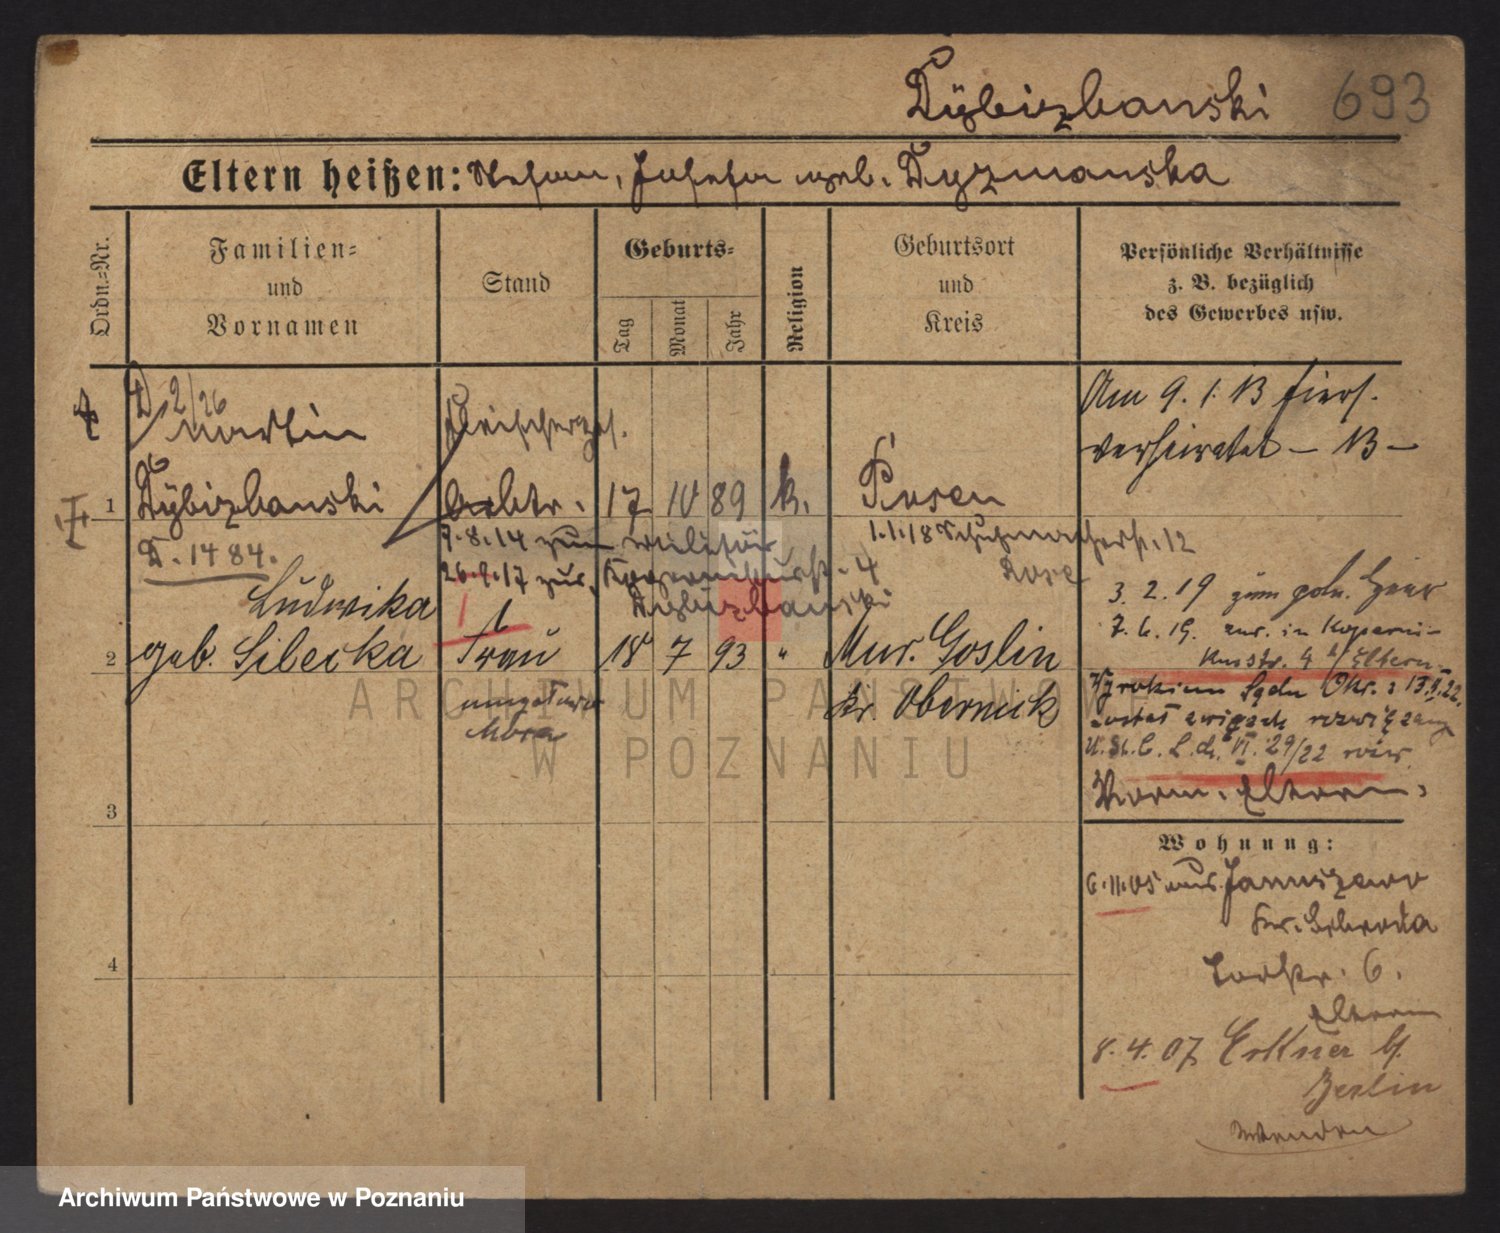 Dÿbizbanski 693
Eltern heißen: Stefan, Josefa geb. Dyzmanska
Ordn.-Nr.
Familien-
und
Vornamen
Stand
Geburts-
Tag
Monat
Jahr
Religion
Geburtsort
und
Kreis
Persönliche Verhältnisse
z. B. bezüglich
des Gewerbes usw.
D 2/26
Martin
Fleischerges.
Am 9. 1. 13 hiers.
verheiratet – 13 –
1 Dÿbizbanski Arbtr. 17 IV 89 k. Posen
D. 1484.
7.8.14 zum Militär
1.1.18 Schuhmacherstr. 12
26.9.17 zur. Kopernikusstr. 4
Dybizbanski
3. 2. 19 zum poln. Heer
7. 6. 19. zur. in Koperni-
kusstr. 4 b/Eltern
Ludwika
2 geb. Silecka Frau 18 7 93 " Mur. Goslin
Kr. Obernick
Wyrokiem Sądu Okr. z 13.
został związek rozwiązany
U. St. C. L. dz. VI. 29/22
Eltern
3
Wohnung:
6.11.05 aus Januszewo
Kr. Schroda
Torstr. 6.
Eltern
4
8. 4. 07 Erkner b/.
Berlin
wenden
ARCHIWUM PAŃSTWOWE
W POZNANIU
Archiwum Państwowe w Poznaniu